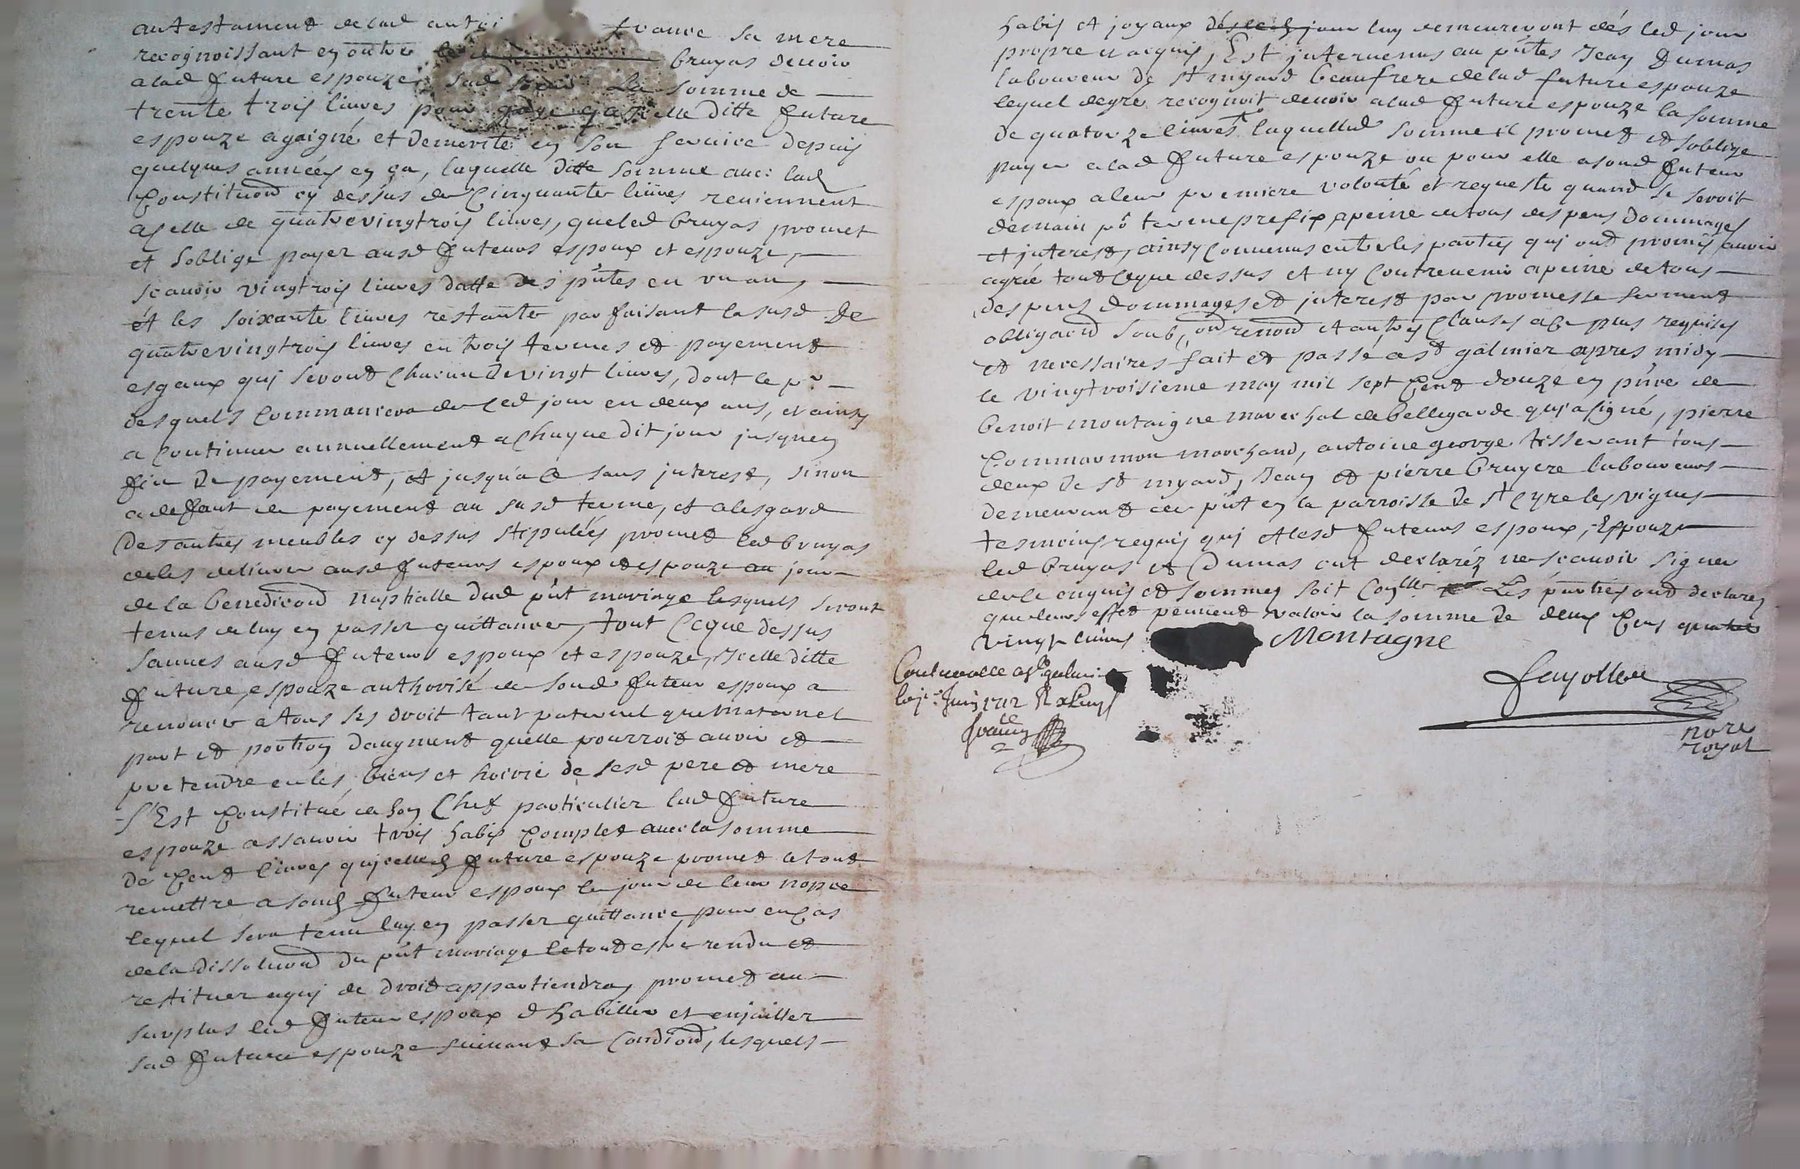 autestament de lad antoi france sa mere
recognoissant en oultre bruyas devoir
alad future espouze sad soeur La somme de
trente trois livres pour gage qu'icelle ditte future
espouze a gaigné et demerité en son service depuis
quelques années en ça, laquelle ditte somme avec lad
Constituõn cy dessus de Cinquante livres reviennent
a celle de quatrevingtrois livres, queled bruyas promet
et soblige payer ausd futeurs espoux et espouze,
scavoir vingtrois livres datte des pñtes en un an,
et les soixante livres restante parfaisant la susd de
quatrevingtrois livres en trois termes et payement
esgaux qui seront Chacun de vingt livres, dont le pr
desquels Commancera de ced jour en deux ans, et ainsy
a Continuer annuellement a Chaque dit jour jusques en
fin de payement, et jusqu'a ce sans interest, sinon
a deffaut de payement au susd terme, et alesgard
des autres meubles cy dessus stipulés promet led bruyas
de les delivrer ausd futeurs espoux et espouze au jour
de la benediction nuptialle dud pñt mariage lesquels seront
tenus de luy en passer quittance, tout Ceque dessus
sauves ausd futeurs espoux et espouze, Icelle ditte
future espouze authorisé de soud futeur espoux a
renoncé atous ses droit tant paternel que maternel
part et portion daugment quelle pourroit avoir et
pretendre en les biens et hoirie de sesd pere et mere
S'Est Constitué de son Chef particulier lad future
espouze assavoir trois habis Complet avec la somme
de Cent livres qu'icelle future espouze promet le tout
remettre a soud futeur espoux le jour de leur nopce
lequel sera tenu luy en passer quittance, pour en Cas
de la dissolution du pñt mariage le tout estre rendu et
restituer a qui de droit appartiendra, promet au
surplus led futeur espoux d'habiller et enjailler
sad future espouze suivant sa Condition, lesquels
habis et joyaux luy demeureront dés led jour
propre et acquis, Est intervenus au pñtes Jean Dumas
laboureur de st myard beaufrere de lad future espouze
lequel degre recognoit devoir alad future espouze la somme
de quatorze livres laquelled somme il promet et soblige
payer alad future espouze ou pour elle asond futeur
espoux a leur premiere volonté et requeste quand se seroit
demain pr terme prefix, apeine de tous despens dommages
et interest, ainsy Convenus entre les parties qui ont promis avoir
agree tout Ceque dessus et ny Contrevenir apeine de tous
despens dommages et interest par promesse serment
obligaõn soub, on renon et autres Clauses a ce plus requises
et necessaires fait et passé a st galmier apres midy
le vingtroisieme may mil sept Cent douze en pñce de
benoit montaigne mareschal de bellegarde qui a signé, pierre
Commarmon marchand, antoine george tisserant tous
deux de st myard, Jean et pierre bruyere laboureurs
demeurant de pñt en la parroisse de st Cyre les vignes
tesmoins requis qui et lesd futeurs espoux, Espouze
led bruyas et Dumas ont declaréz ne scavoir signer
de ce enquis et sommes soit Coñlle Les parties ont declarez
que leurs effet peuvent valoir la somme de deux Cens
vingt livres Montagne
Contrerolle a st galmier
le jr Juin 1712 Rx
fayolle
nore
royal